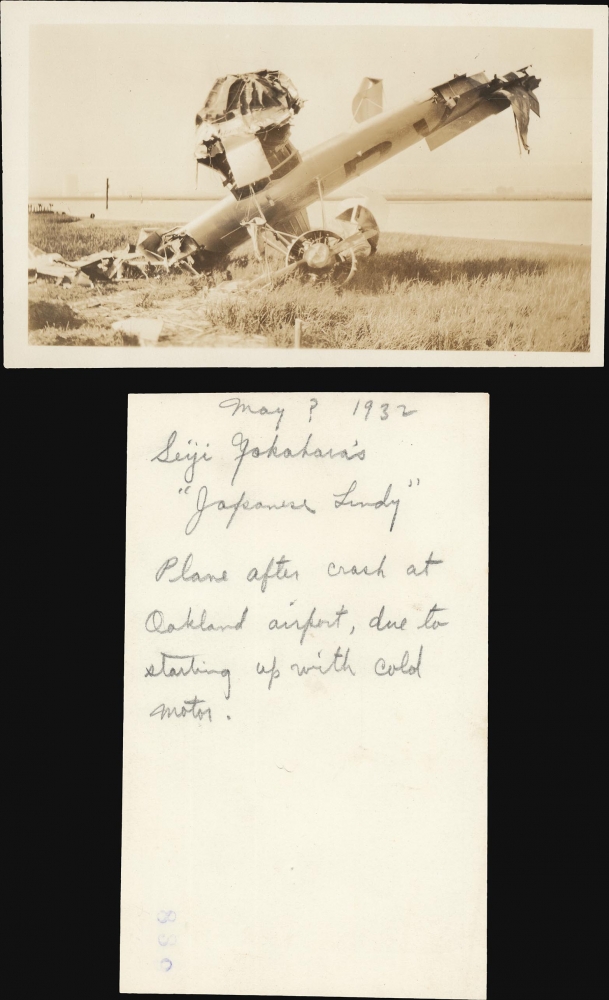 May ? 1932
Seiji Yokahara's
"Japanese Lindy"
Plane after crash at
Oakland airport, due to
starting up with cold
motor.